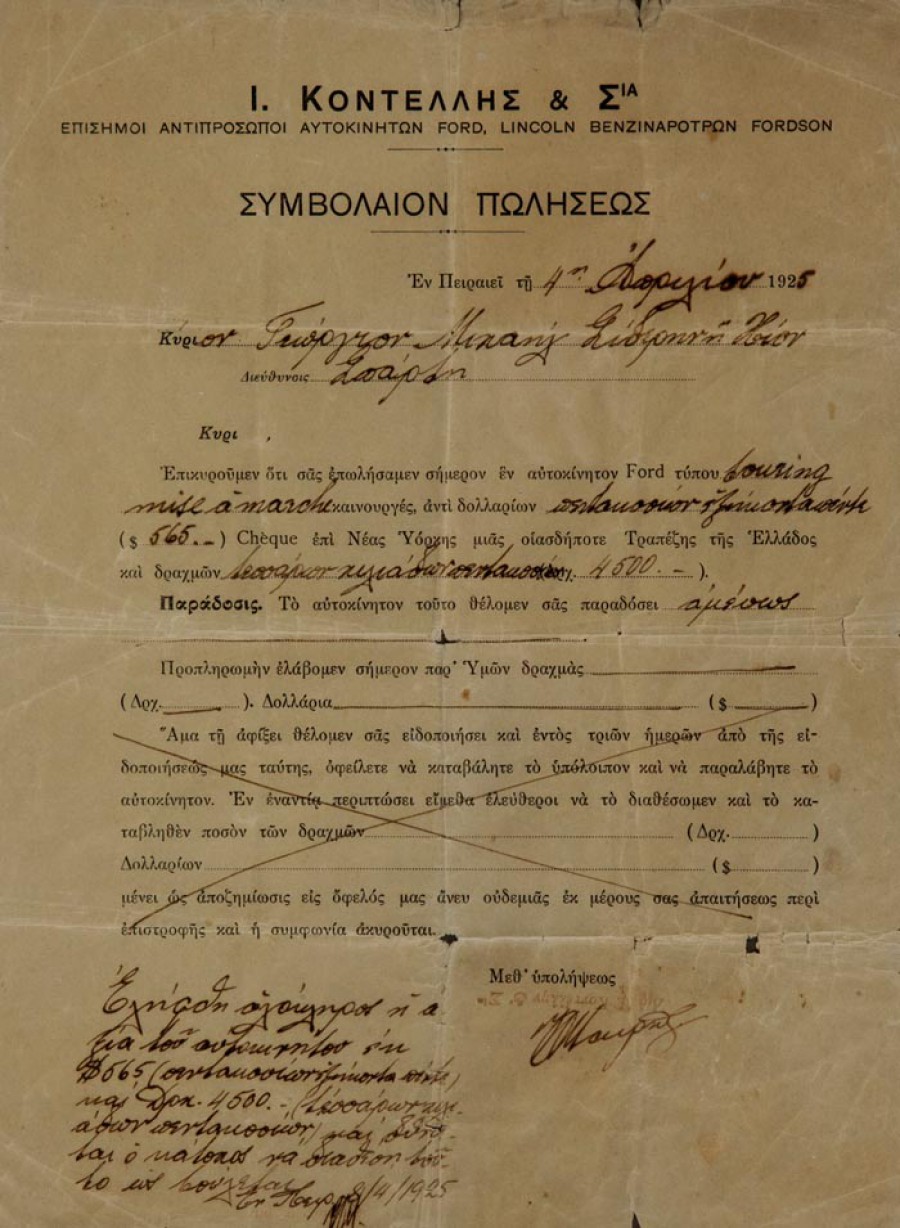 Ι. ΚΟΝΤΕΛΛΗΣ & ΣΙΑ
ΕΠΙΣΗΜΟΙ ΑΝΤΙΠΡΟΣΩΠΟΙ ΑΥΤΟΚΙΝΗΤΩΝ FORD, LINCOLN ΒΕΝΖΙΝΑΡΟΤΡΩΝ FORDSON
ΣΥΜΒΟΛΑΙΟΝ ΠΩΛΗΣΕΩΣ
Ἐν Πειραιεῖ τῇ 4ῃ Ἀπριλίου 1925
Κύριον Γεώργιον Μιχαήλ
Διεύθυνσις Σπάρτη
Κυρι ,
Ἐπικυροῦμεν ὅτι σᾶς ἐπωλήσαμεν σήμερον ἓν αὐτοκίνητον Ford τύπου touring
mise à marche καινουργές, ἀντὶ δολλαρίων πεντακοσίων ἑξήκοντα πέντε
($ 565.–) Chèque ἐπὶ Νέας Ὑόρκης μιᾶς οἱασδήποτε Τραπέζης τῆς Ἑλλάδος
καὶ δραχμῶν τεσσάρων χιλιάδων πεντακοσίων 4500.–).
Παράδοσις. Τὸ αὐτοκίνητον τοῦτο θέλομεν σᾶς παραδόσει ἀμέσως
Προπληρωμὴν ἐλάβομεν σήμερον παρ' Ὑμῶν δραχμὰς
(Δρχ. ). Δολλάρια ($ )
Ἅμα τῇ ἀφίξει θέλομεν σᾶς εἰδοποιήσει καὶ ἐντὸς τριῶν ἡμερῶν ἀπὸ τῆς εἰ-
δοποιήσεώς μας ταύτης, ὀφείλετε νὰ καταβάλητε τὸ ὑπόλοιπον καὶ νὰ παραλάβητε τὸ
αὐτοκίνητον. Ἐν ἐναντίᾳ περιπτώσει εἴμεθα ἐλεύθεροι νὰ τὸ διαθέσωμεν καὶ τὸ κα-
ταβληθὲν ποσὸν τῶν δραχμῶν (Δρχ. )
Δολλαρίων ($ )
μένει ὡς ἀποζημίωσις εἰς ὄφελός μας ἄνευ οὐδεμιᾶς ἐκ μέρους σας ἀπαιτήσεως περὶ
ἐπιστροφῆς καὶ ἡ συμφωνία ἀκυροῦται.
Μεθ' ὑπολήψεως
Ἐλήφθη ὁλόκληρος ἡ ἀ
ξία τοῦ αὐτοκινήτου ἐκ
$ 565 (πεντακοσίων ἑξήκοντα πέντε)
καὶ Δρχ. 4500.– (τεσσάρων χιλι-
άδων πεντακοσίων) καὶ δύνα-
ται ὁ κάτοχος νὰ διαθέσῃ τοῦ-
το ὡς βούλεται
Ἐν Πειρ 8/4/1925